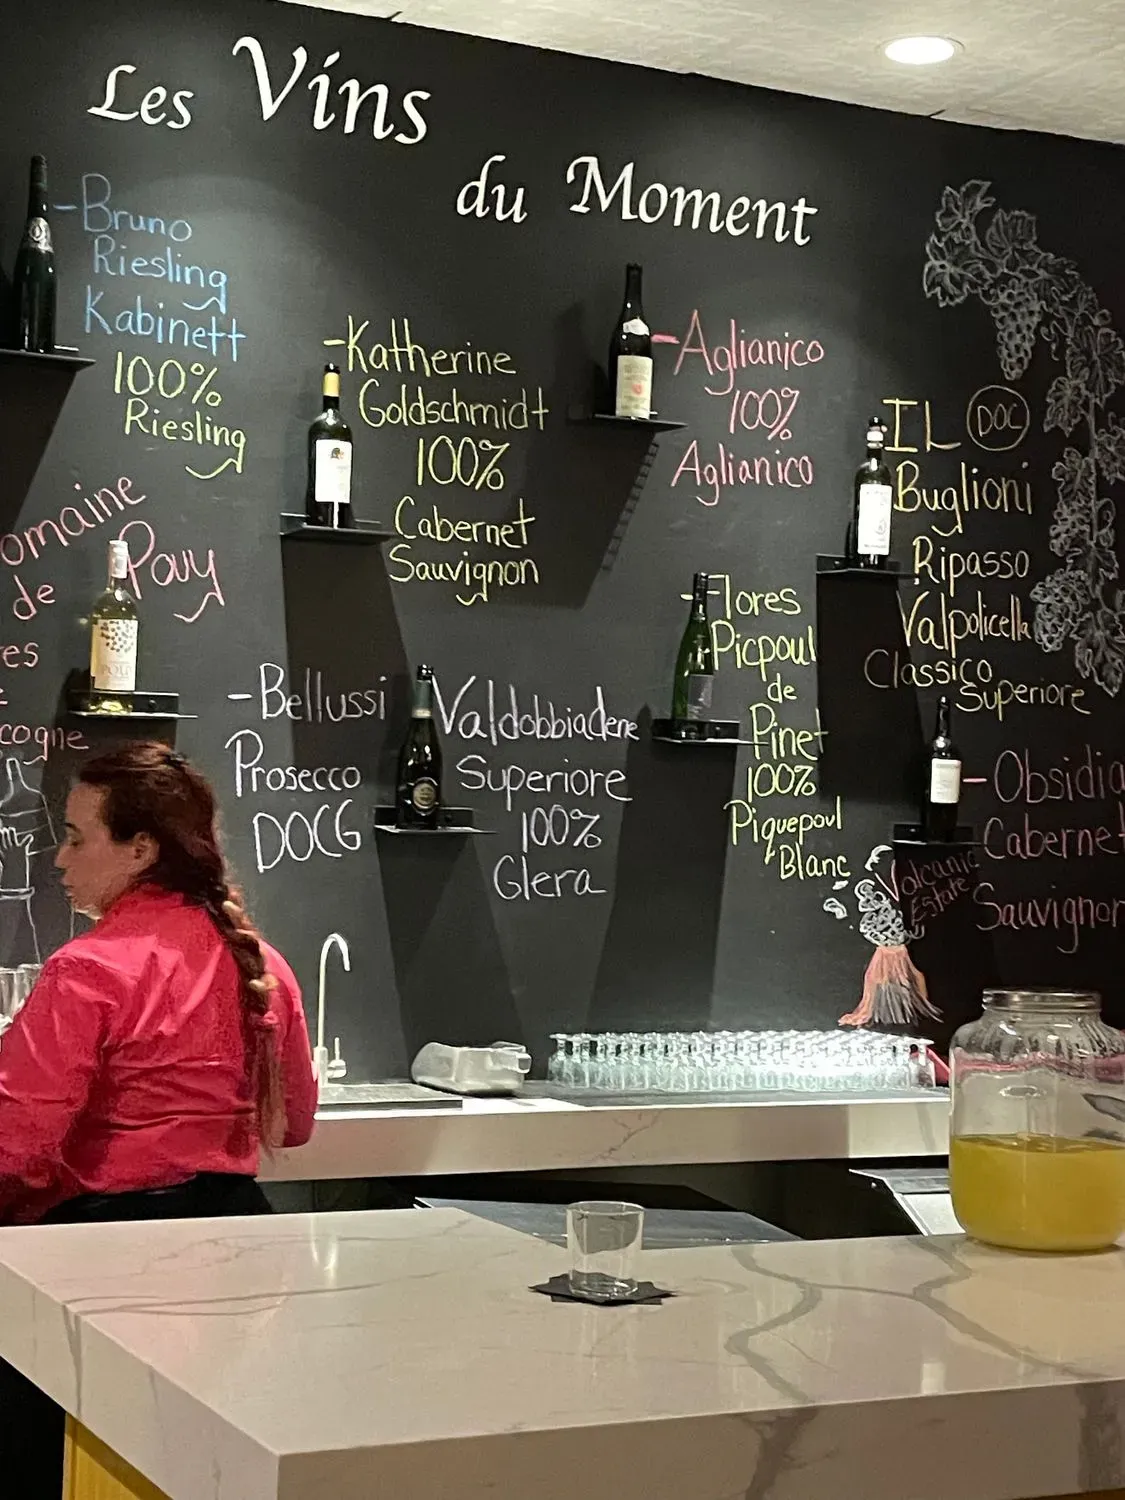 Les Vins
du Moment
-Bruno
Riesling
Kabinett
100%
Riesling
omaine
de Pouy
es
cogne
-Katherine
Goldschmidt
100%
Cabernet
Sauvignon
-Bellussi
Prosecco
DOCG
Valdobbiadene
Superiore
100%
Glera
-Aglianico
100%
Aglianico
-Flores
Picpoul
de
Pinet
100%
Piquepoul
Blanc
IL DOC
Buglioni
Ripasso
Valpolicella
Classico
Superiore
-Obsidia
Cabernet
Sauvignon
Volcanic
Estate
POUY